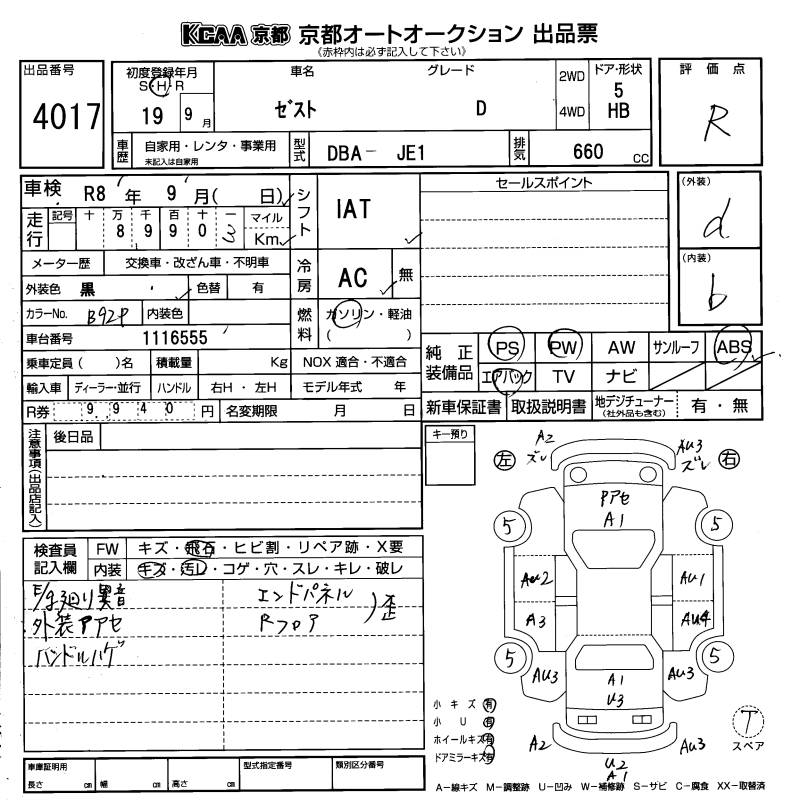 KCAA 京都 京都オートオークション 出品票
《赤枠内は必ず記入して下さい》
出品番号
4017
初度登録年月
S・H・R
19 9月
車名
ゼスト
グレード
D
2WD
4WD
ドア・形状
5
HB
評価点
R
車歴
自家用・レンタ・事業用
未記入は自家用
型式
DBA- JE1
排気
660 cc
車検 R8年 9月( 日)
シフト
IAT
セールスポイント
(外装)
d
走行
記号 十 万 千 百 十 一
8 9 9 0 3
マイル
Km
(内装)
b
メーター歴 交換車・改ざん車・不明車
冷房
AC 無
外装色 黒 色替 有
カラーNo. B92P 内装色
燃料
ガソリン・軽油
( )
車台番号 1116555
乗車定員( )名 積載量 Kg NOX 適合・不適合
輸入車 ディーラー・並行 ハンドル 右H・左H モデル年式 年
R券 9940円 名変期限 月 日
純正装備品
PS PW AW サンルーフ ABS
エアバック TV ナビ
新車保証書 取扱説明書 地デジチューナー
(社外品も含む)
有・無
注意事項(出品店記入)
後日品
キー預り
左
A2
ズレ
AU3
ズレ
右
PアセA1
5
5
AU2
AU1
A3
AU4
5
5
AU3
A1
U3
AU3
A2
U2
A1
AU3
T
スペア
検査員記入欄
FW キズ・飛石・ヒビ割・リペア跡・X要
内装 キズ・汚レ・コゲ・穴・スレ・キレ・破レ
E/g廻り異音
外装Pアセ
ハンドルハゲ
エンドパネル
Rフロア
)歪
小キズ 有
小U 有
ホイールキズ 有
ドアミラーキズ 有
車庫証明用
長さ cm 幅 cm 高さ cm
型式指定番号
類別区分番号
A-線キズ M-調整跡 U-凹み W-補修跡 S-サビ C-腐食 XX-取替済